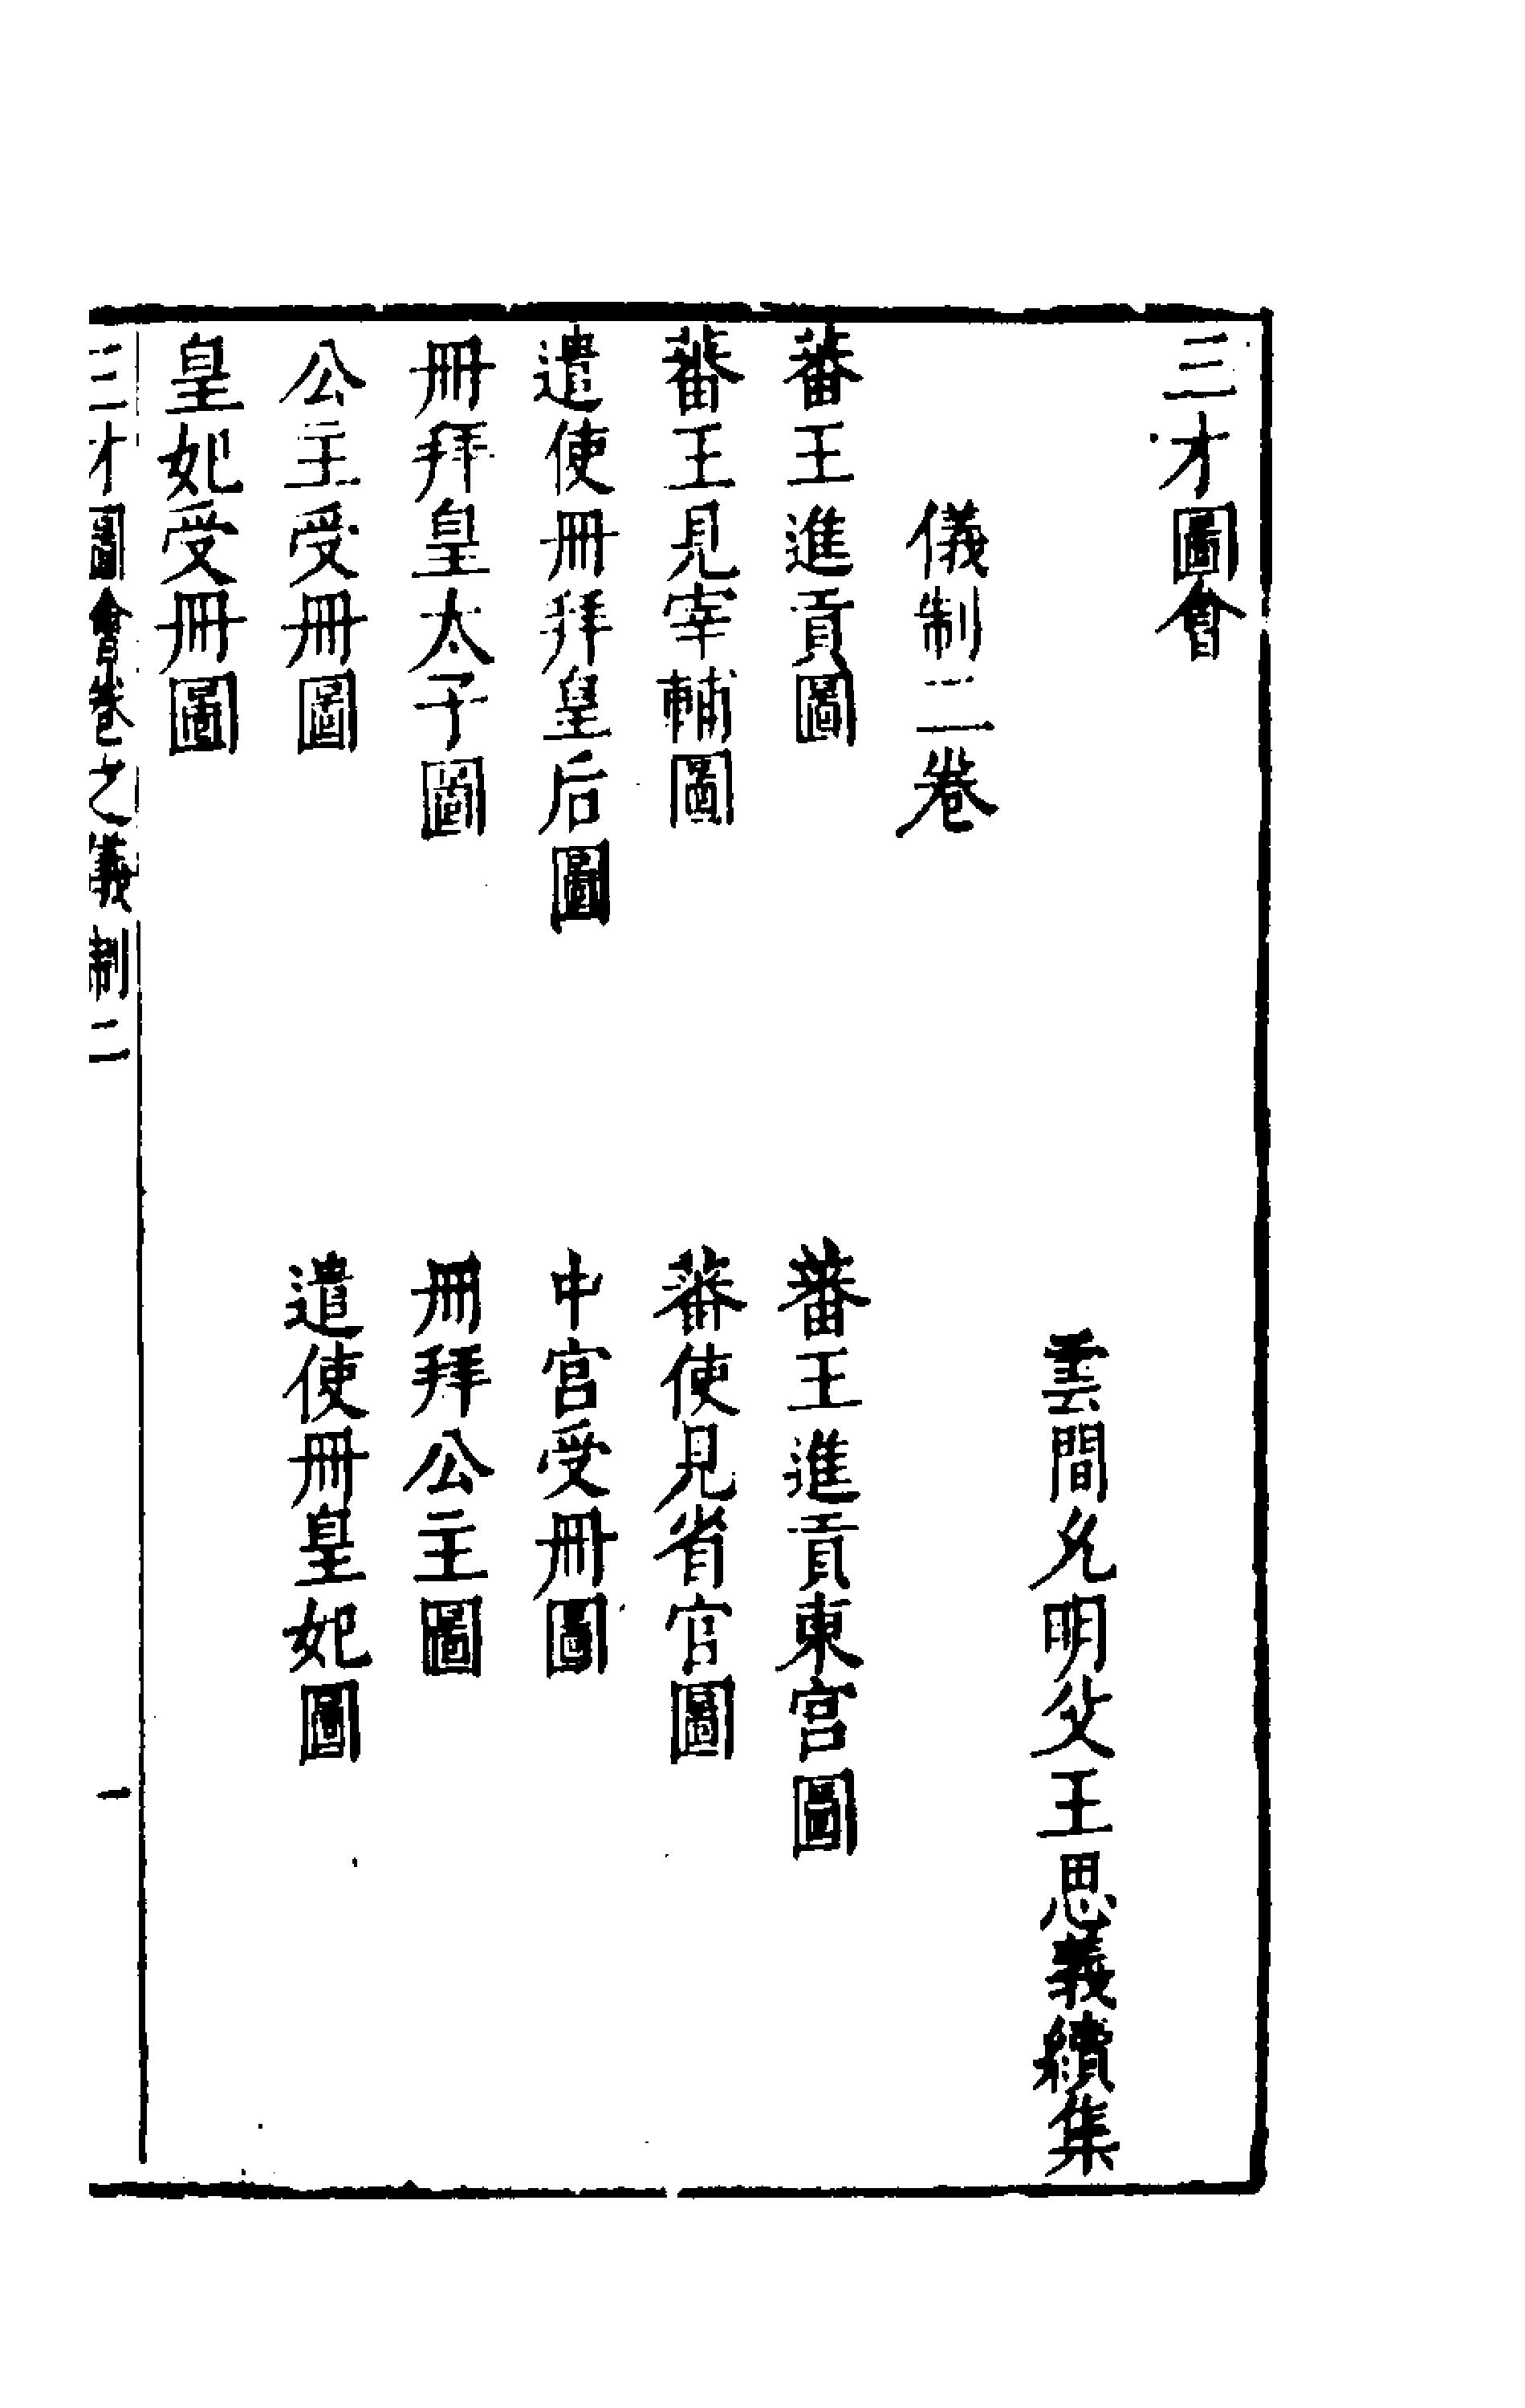 三才圖會
雲間允明父王思義續集
儀制二卷
蕃王進貢圖
蕃王進貢東宮圖
蕃王見宰輔圖
蕃使見省官圖
遣使冊拜皇后圖
中宮受冊圖
冊拜皇太子圖
冊拜公主圖
公主受冊圖
遣使冊皇妃圖
皇妃受冊圖
三才圖會卷之儀制二
一